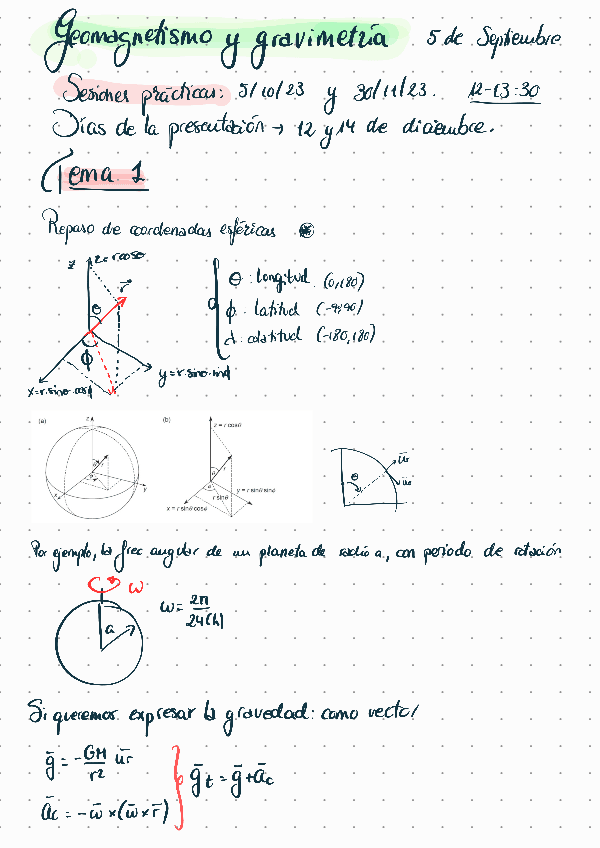 Geomagnetismo y gravimetría 5 de Septiembre
Sesiones prácticas: 5/10/23 y 30/11/23. 12-13:30
Días de la presentación → 12 y 14 de diciembre.
Tema 1
Repaso de coordenadas esféricas
z z=r cosθ
r⃗
θ
ϕ
y=r·sinθ·sinϕ
x=r·sinθ·cosϕ
θ: longitud (0,180)
ϕ: latitud (-90,90)
d: colatitud (-180,180)
(a) z x y
(b) z = r cosθ
y = r sinθ sinϕ
r sinθ
x = r sinθ cosϕ
θ ūr
Por ejemplo, la frec. angular de un planeta de radio a, con periodo de rotación
ω
a
ω = 2π/24(h)
Si queremos expresar la gravedad: como vector
ḡ = -GM/r² ūr
āc = -ω̄ × (ω̄ × r̄)
ḡt = ḡ + āc